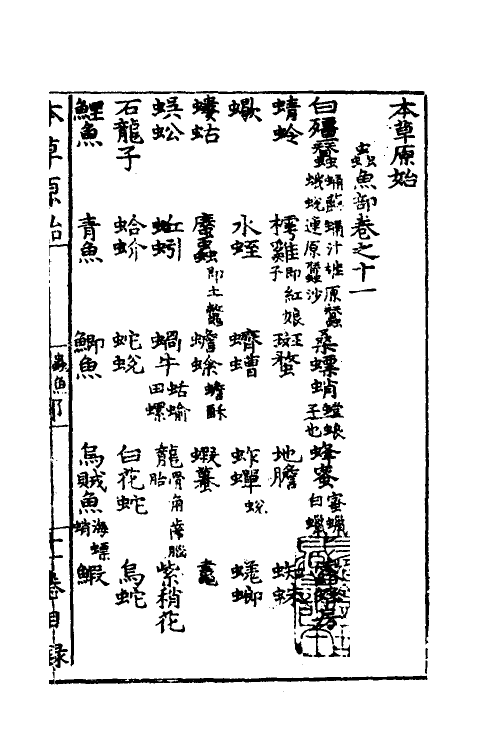 本草原始
蟲魚部卷之十一
白殭蠶 蛹 蛹汁 蛾 蛻 連 原蠶 原蠶沙 桑螵蛸 螳螂子也 蜂蜜 蜜蠟 白蠟 房
蜻蛉 樗雞即紅娘子 斑蝥 地膽 蜘蛛
蠍 水蛭 蠐螬 蚱蟬 蛻 蜣螂
螻蛄 䗪蟲即土鱉 蟾蜍 蟾酥 蝦蟇 鼃
蜈蚣 蚯蚓 蝸牛 蛞蝓 田螺 龍骨 角 齒 腦 胎 紫稍花
石龍子 蛤蚧 蛇蛻 白花蛇 烏蛇
鯉魚 青魚 鯽魚 烏賊魚 海螵蛸 鰕
本草原始 蟲魚部 十一卷目錄